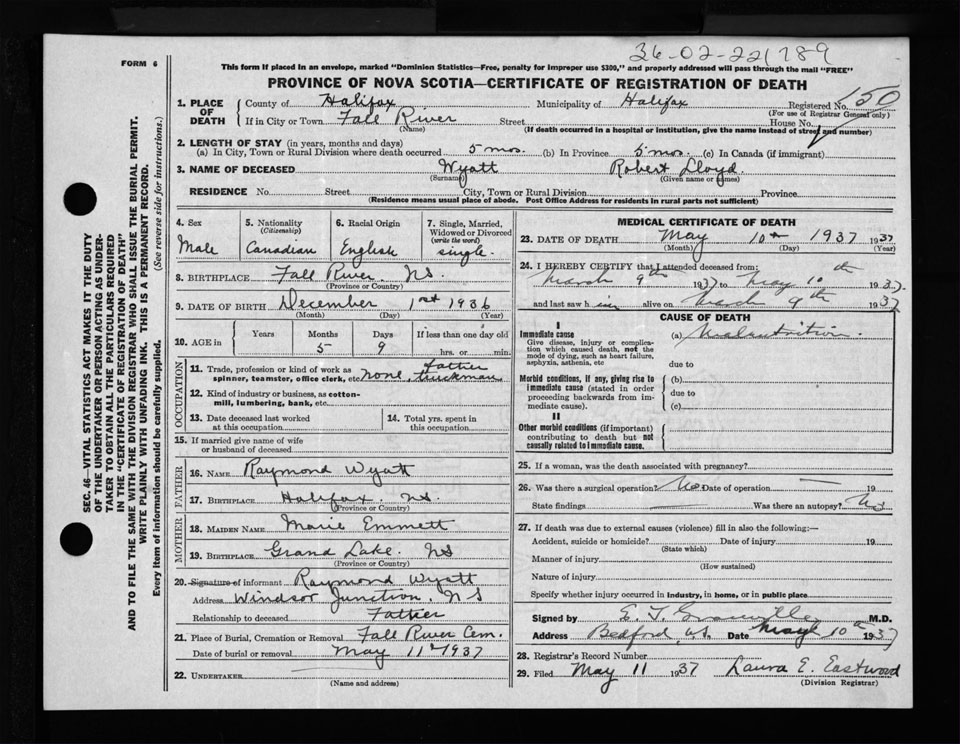 36-02-221789
FORM 6
This form if placed in an envelope, marked "Dominion Statistics—Free, penalty for improper use $300," and properly addressed will pass through the mail "FREE"
PROVINCE OF NOVA SCOTIA—CERTIFICATE OF REGISTRATION OF DEATH
SEC. 46—VITAL STATISTICS ACT MAKES IT THE DUTY
OF THE UNDERTAKER OR PERSON ACTING AS UNDER-
TAKER TO OBTAIN ALL THE PARTICULARS REQUIRED
IN THE "CERTIFICATE OF REGISTRATION OF DEATH"
AND TO FILE THE SAME WITH THE DIVISION REGISTRAR WHO SHALL ISSUE THE BURIAL PERMIT.
WRITE PLAINLY WITH UNFADING INK. THIS IS A PERMANENT RECORD.
Every item of information should be carefully supplied. (See reverse side for instructions.)
1. PLACE OF DEATH County of Halifax Municipality of Halifax Registered No. 150
(For use of Registrar General only)
If in City or Town Fall River Street House No.
(Name) (If death occurred in a hospital or institution, give the name instead of street and number)
2. LENGTH OF STAY (in years, months and days)
(a) In City, Town or Rural Division where death occurred 5 mos. (b) In Province 5 mos. (c) In Canada (if immigrant)
3. NAME OF DECEASED Wyatt Robert Lloyd.
(Surname) (Given name or names)
RESIDENCE No. Street City, Town or Rural Division Province
(Residence means usual place of abode. Post Office Address for residents in rural parts not sufficient)
4. Sex 5. Nationality (Citizenship) 6. Racial Origin 7. Single, Married, Widowed or Divorced (write the word)
Male Canadian English single.
8. BIRTHPLACE Fall River. N.S.
(Province or Country)
9. DATE OF BIRTH December 1st 1936
(Month) (Day) (Year)
10. AGE in Years Months Days If less than one day old
5 9 hrs. or min.
OCCUPATION
11. Trade, profession or kind of work as spinner, teamster, office clerk, etc. none, father truckman
12. Kind of industry or business, as cotton-mill, lumbering, bank, etc.
13. Date deceased last worked at this occupation
14. Total yrs. spent in this occupation
15. If married give name of wife or husband of deceased
FATHER
16. NAME Raymond Wyatt
17. BIRTHPLACE Halifax. N.S.
(Province or Country)
MOTHER
18. MAIDEN NAME Marie Emmett
19. BIRTHPLACE Grand Lake. NS
(Province or Country)
20. Signature of informant Raymond Wyatt
Address Windsor Junction. N S
Relationship to deceased Father
21. Place of Burial, Cremation or Removal Fall River Cem.
Date of burial or removal May 11th 1937
22. UNDERTAKER
(Name and address)
MEDICAL CERTIFICATE OF DEATH
23. DATE OF DEATH May 10th 1937 1937
(Month) (Day) (Year)
24. I HEREBY CERTIFY that I attended deceased from:
March 9th 1937 to May 10th 1937.
and last saw him alive on March 9th 1937
CAUSE OF DEATH
I
Immediate cause (a) Malnutrition
Give disease, injury or complication which caused death, not the mode of dying, such as heart failure, asphyxia, asthenia, etc
due to
Morbid conditions, if any, giving rise to immediate cause (stated in order proceeding backwards from immediate cause).
(b)
due to
(c)
II
Other morbid conditions (if important) contributing to death but not causally related to immediate cause.
25. If a woman, was the death associated with pregnancy?
26. Was there a surgical operation? No Date of operation — 19
State findings — Was there an autopsy? No
27. If death was due to external causes (violence) fill in also the following:—
Accident, suicide or homicide? Date of injury 19
(State which)
Manner of injury
(How sustained)
Nature of injury
Specify whether injury occurred in industry, in home, or in public place
Signed by M.D.
Address Bedford Date May 10th 1937
28. Registrar's Record Number
29. Filed May 11 1937 Laura E. Eastwood
(Division Registrar)